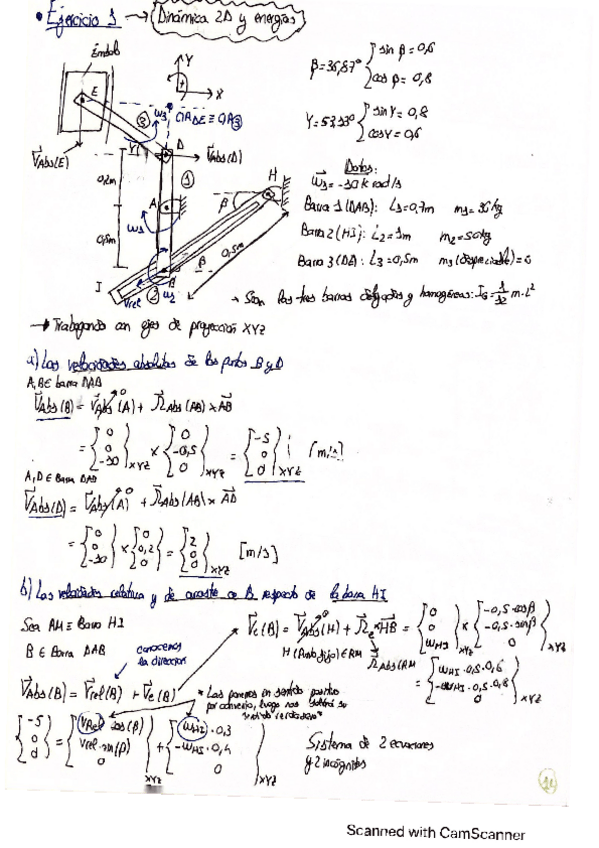 • Ejercicio 1 → Dinámica 2D y energías
Émbolo
E
Y
X
ω3
CIR DE ≡ CIR③
③
D
VAbs(E)
γ
VAbs(D)
0,2m
①
H
A
β
ω1
0,5m
0,5m
B
β
I
Vrel
②
β=36,87º { sin β = 0,6
cos β = 0,8
γ=53,13º { sin γ = 0,8
cos γ = 0,6
Datos:
ω1 = -10 k rad/s
Barra 1 (DAB): L1=0,7m
Barra 2 (HI): L2=1m m2=50kg
Barra 3 (DE): L3=0,5m m3 (despreciable) = 0
→ Son las tres barras delgadas y homogéneas: IG = 1/12 m·L²
→ Trabajando con ejes de proyección XYZ
a) Las velocidades absolutas de los puntos B y D
A, B ∈ barra DAB
VAbs(B) = VAbs(A) + ΩAbs(AB) × AB
= {0 0 -10}XYZ × {0 -0,5 0}XYZ = {-5 0 0}XYZ [m/s]
A, D ∈ Barra DAB
VAbs(D) = VAbs(A) + ΩAbs(AB) × AD
= {0 0 -10} × {0 0,2 0} = {2 0 0}XYZ [m/s]
b) Las velocidades relativa y de arrastre de B respecto de la barra HI
Sea RM ≡ Barra HI
B ∈ Barra DAB
conocemos
la dirección
Ve(B) = VAbs(H) + Ωe × HB = {0 0 ωHI}XYZ × {-0,5·cosβ -0,5·sinβ 0}XYZ
H (Punto fijo) ∈ RM
ΩAbs(RM)
= {ωHI·0,5·0,6 -ωHI·0,5·0,8 0}XYZ
VAbs(B) = Vrel(B) + Ve(B)
*Las ponemos en sentido positivo
por convenio, luego nos saldrá su
sentido verdadero*
{-5 0 0} = {Vrel·cos(β) Vrel·sin(β) 0}XYZ + {ωHI·0,3 -ωHI·0,4 0}XYZ
Sistema de 2 ecuaciones
y 2 incógnitas
Scanned with CamScanner